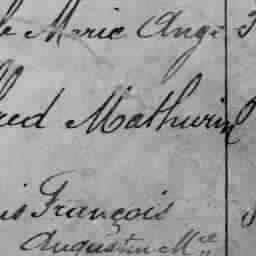 e Marie Ange
red Mathurin
is François
Augustin Mie